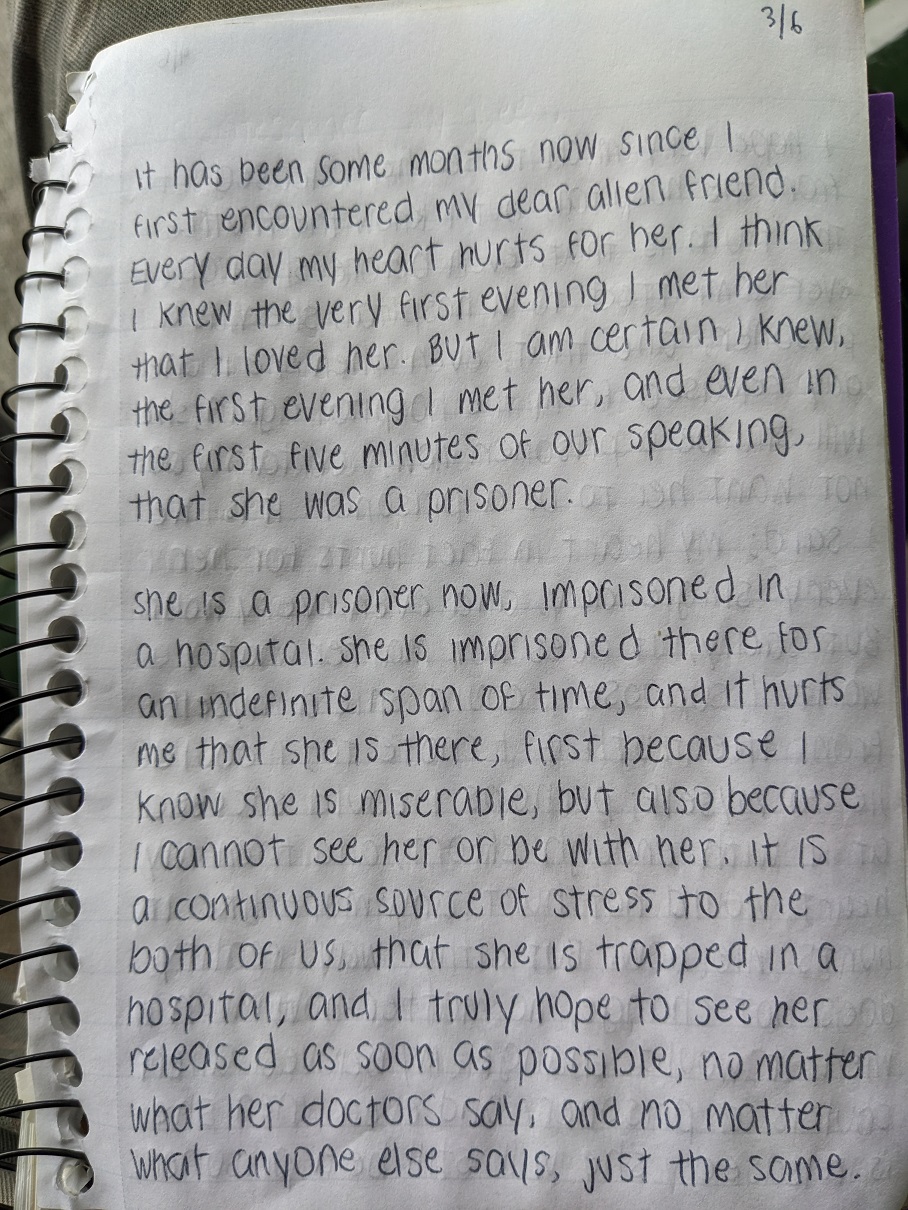 3/6
It has been some months now since I
first encountered my dear alien friend.
Every day my heart hurts for her. I think
I knew the very first evening I met her
that I loved her. But I am certain I knew,
the first evening I met her, and even in
the first five minutes of our speaking,
that she was a prisoner.
she is a prisoner now, imprisoned in
a hospital. she is imprisoned there for
an indefinite span of time, and it hurts
me that she is there, first because I
know she is miserable, but also because
I cannot see her or be with her. It is
a continuous source of stress to the
both of us, that she is trapped in a
hospital, and I truly hope to see her
released as soon as possible, no matter
what her doctors say, and no matter
what anyone else says, just the same.